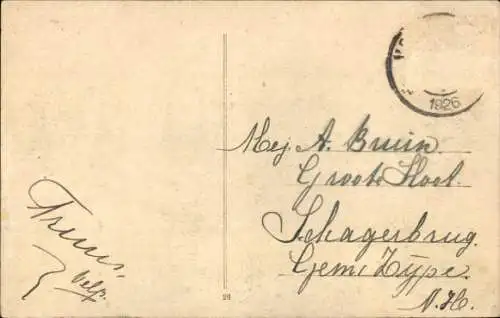 1926
Mej A. Bruin.
Groote Sloot.
Schagerbrug.
Gem. Zijpe.
N.H.
Truus.
26